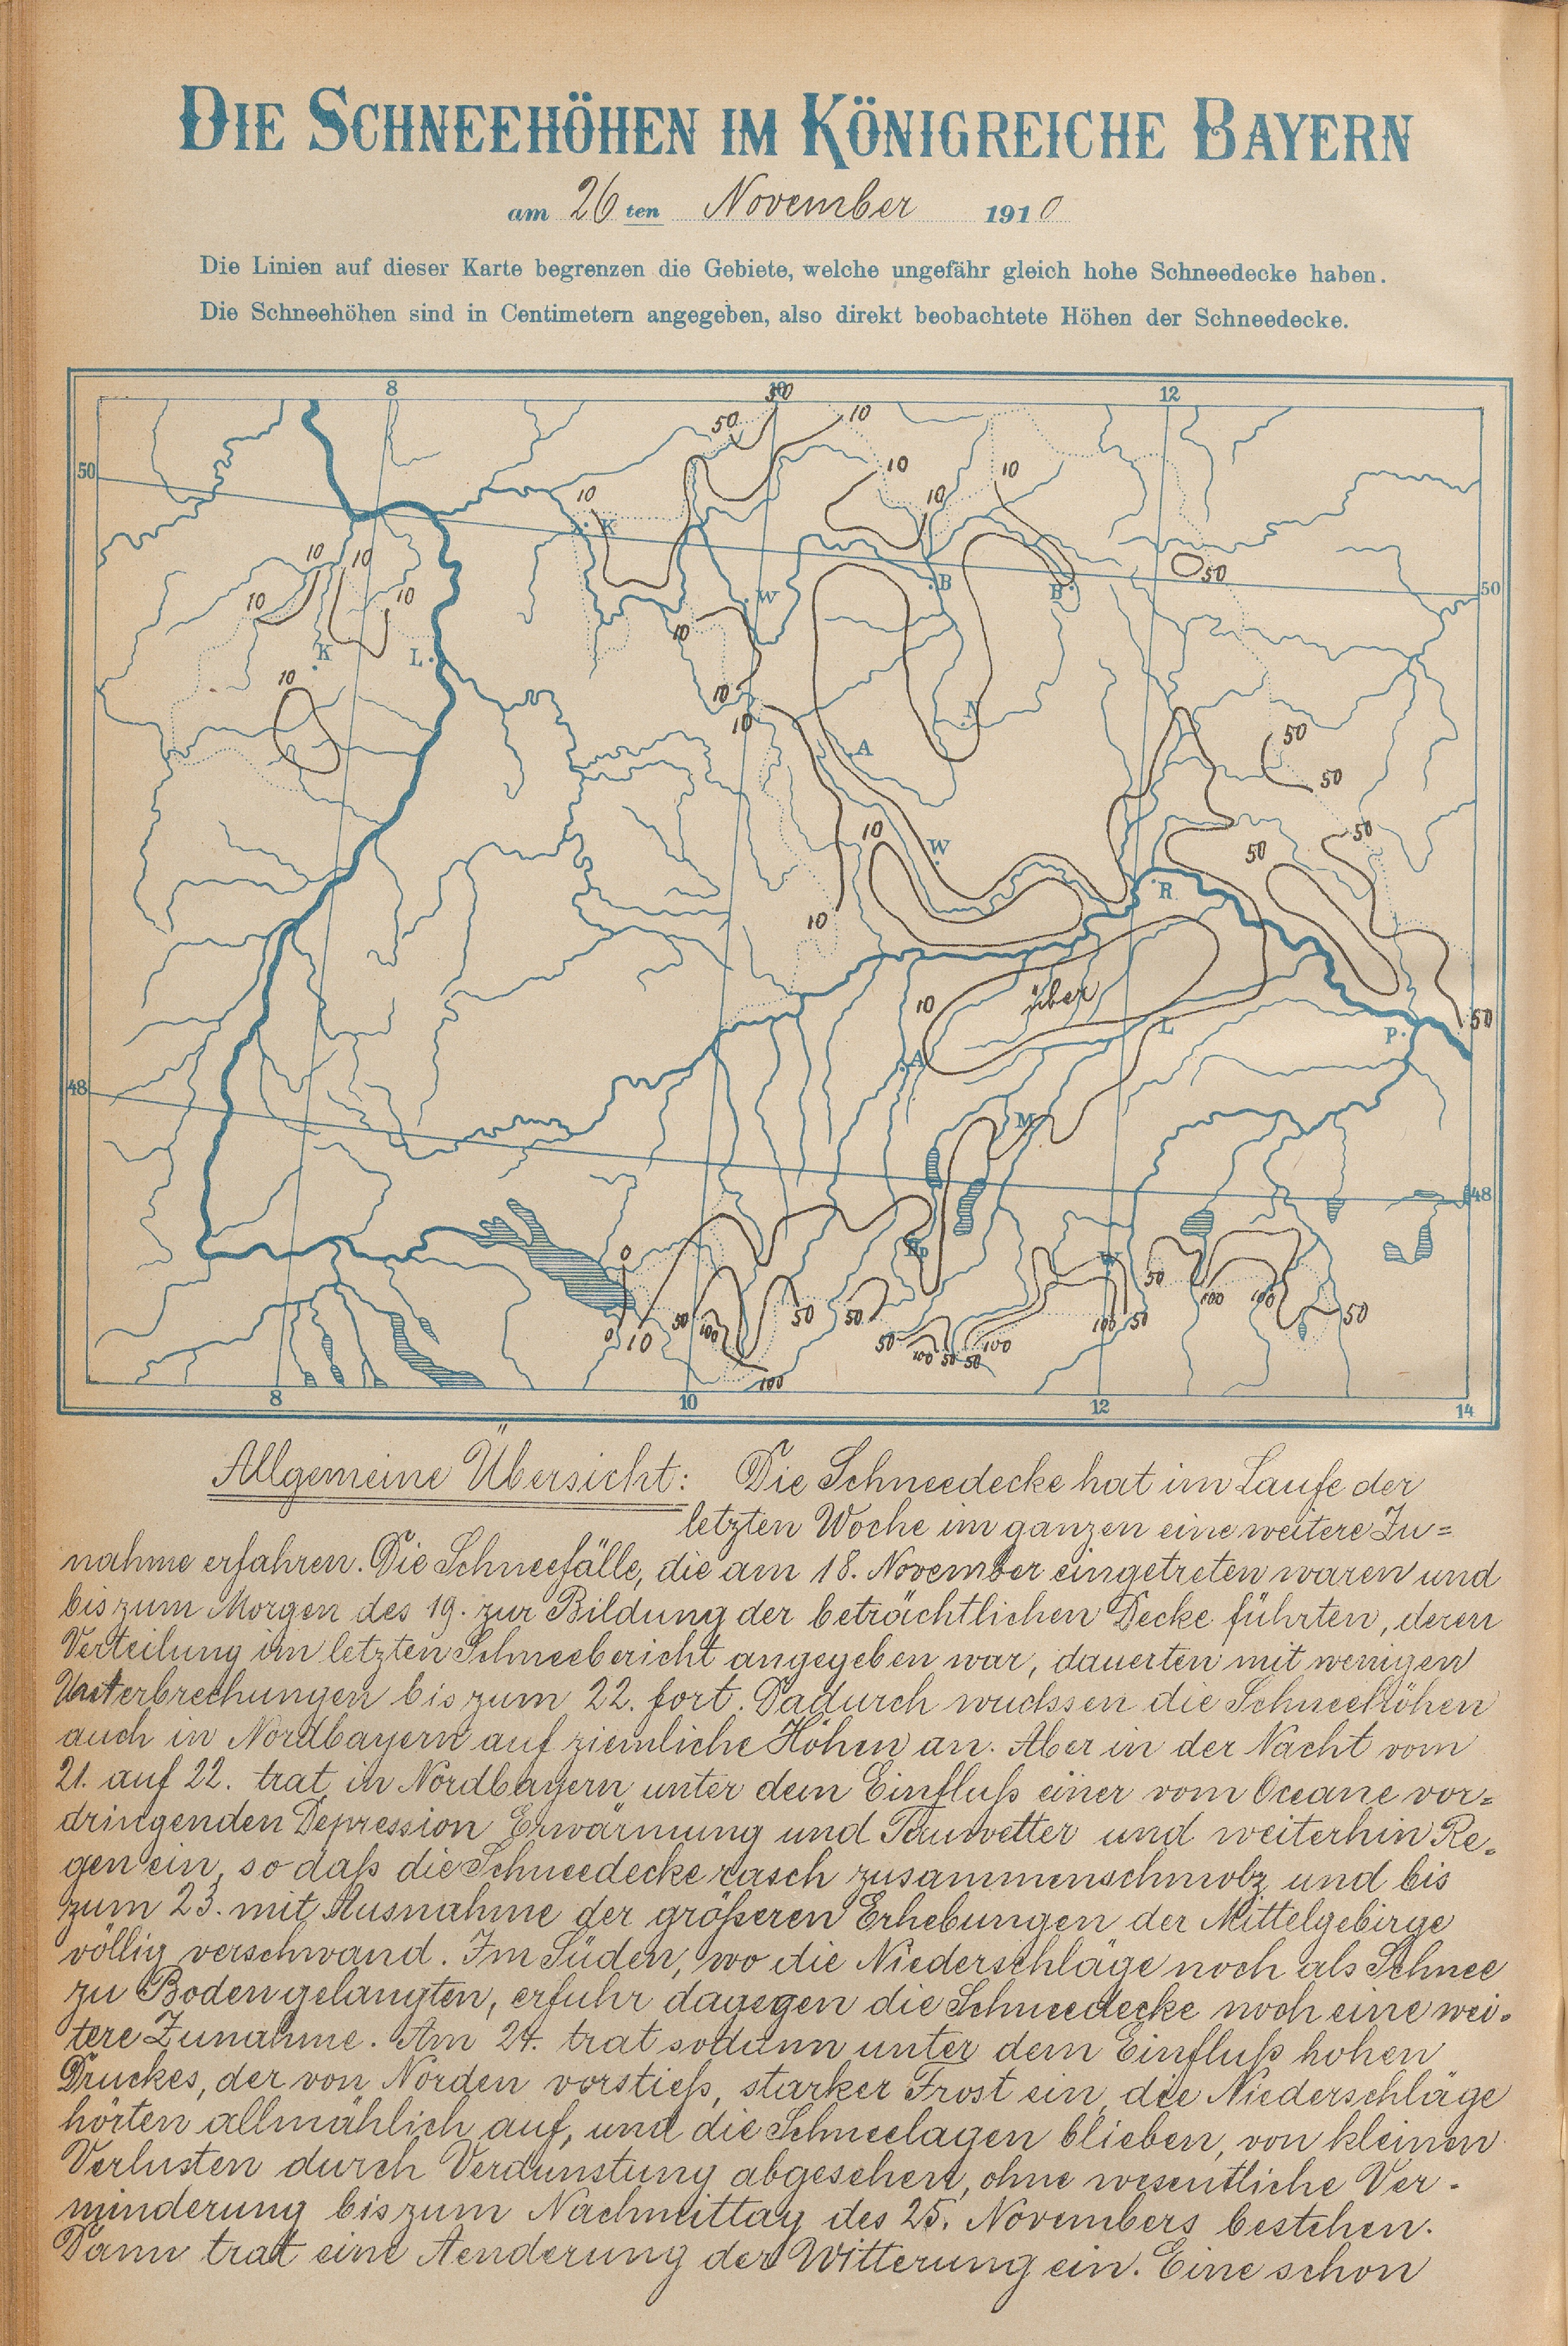 DIE SCHNEEHÖHEN IM KÖNIGREICHE BAYERN
am 26ten November 1910
Die Linien auf dieser Karte begrenzen die Gebiete, welche ungefähr gleich hohe Schneedecke haben.
Die Schneehöhen sind in Centimetern angegeben, also direkt beobachtete Höhen der Schneedecke.
8 10 12
50 10
50
10 10
10 10
K
50
10 10
10 10
K L
10
W
10
B
B
50
50
10
10
N
A
50
50
10
W
50
50
R
10
10
über
50
A
L
P
48
M
48
0
W
0 10 50 100 50 50
50 100 50 50 100
100 50
50 100 100 50
100
8 10 12 14
Allgemeine Übersicht: Die Schneedecke hat im Laufe der
letzten Woche im ganzen eine weitere Zu=
nahme erfahren. Die Schneefälle, die am 18. November eingetreten waren und
bis zum Morgen des 19. zur Bildung der beträchtlichen Decke führten, deren
Verteilung im letzten Schneebericht angegeben war, dauerten mit wenigen
Unterbrechungen bis zum 22. fort. Dadurch wuchsen die Schneehöhen
auch in Nordbayern auf ziemliche Höhen an. Aber in der Nacht vom
21. auf 22. trat in Nordbayern unter dem Einfluß einer vom Oceane vor=
dringenden Depression Erwärmung und Tauwetter und weiterhin Re=
gen ein, so daß die Schneedecke rasch zusammenschmolz und bis
zum 23. mit Ausnahme der größeren Erhebungen der Mittelgebirge
völlig verschwand. Im Süden, wo die Niederschläge noch als Schnee
zu Boden gelangten, erfuhr dagegen die Schneedecke noch eine wei=
tere Zunahme. Am 24. trat sodann unter dem Einfluß hohen
Druckes, der von Norden vorstieß, starker Frost ein, die Niederschläge
hörten allmählich auf, und die Schneelagen blieben, von kleinen
Verlusten durch Verdunstung abgesehen, ohne wesentliche Ver-
minderung bis zum Nachmittag des 25. Novembers bestehen.
Dann trat eine Aenderung der Witterung ein. Eine schon